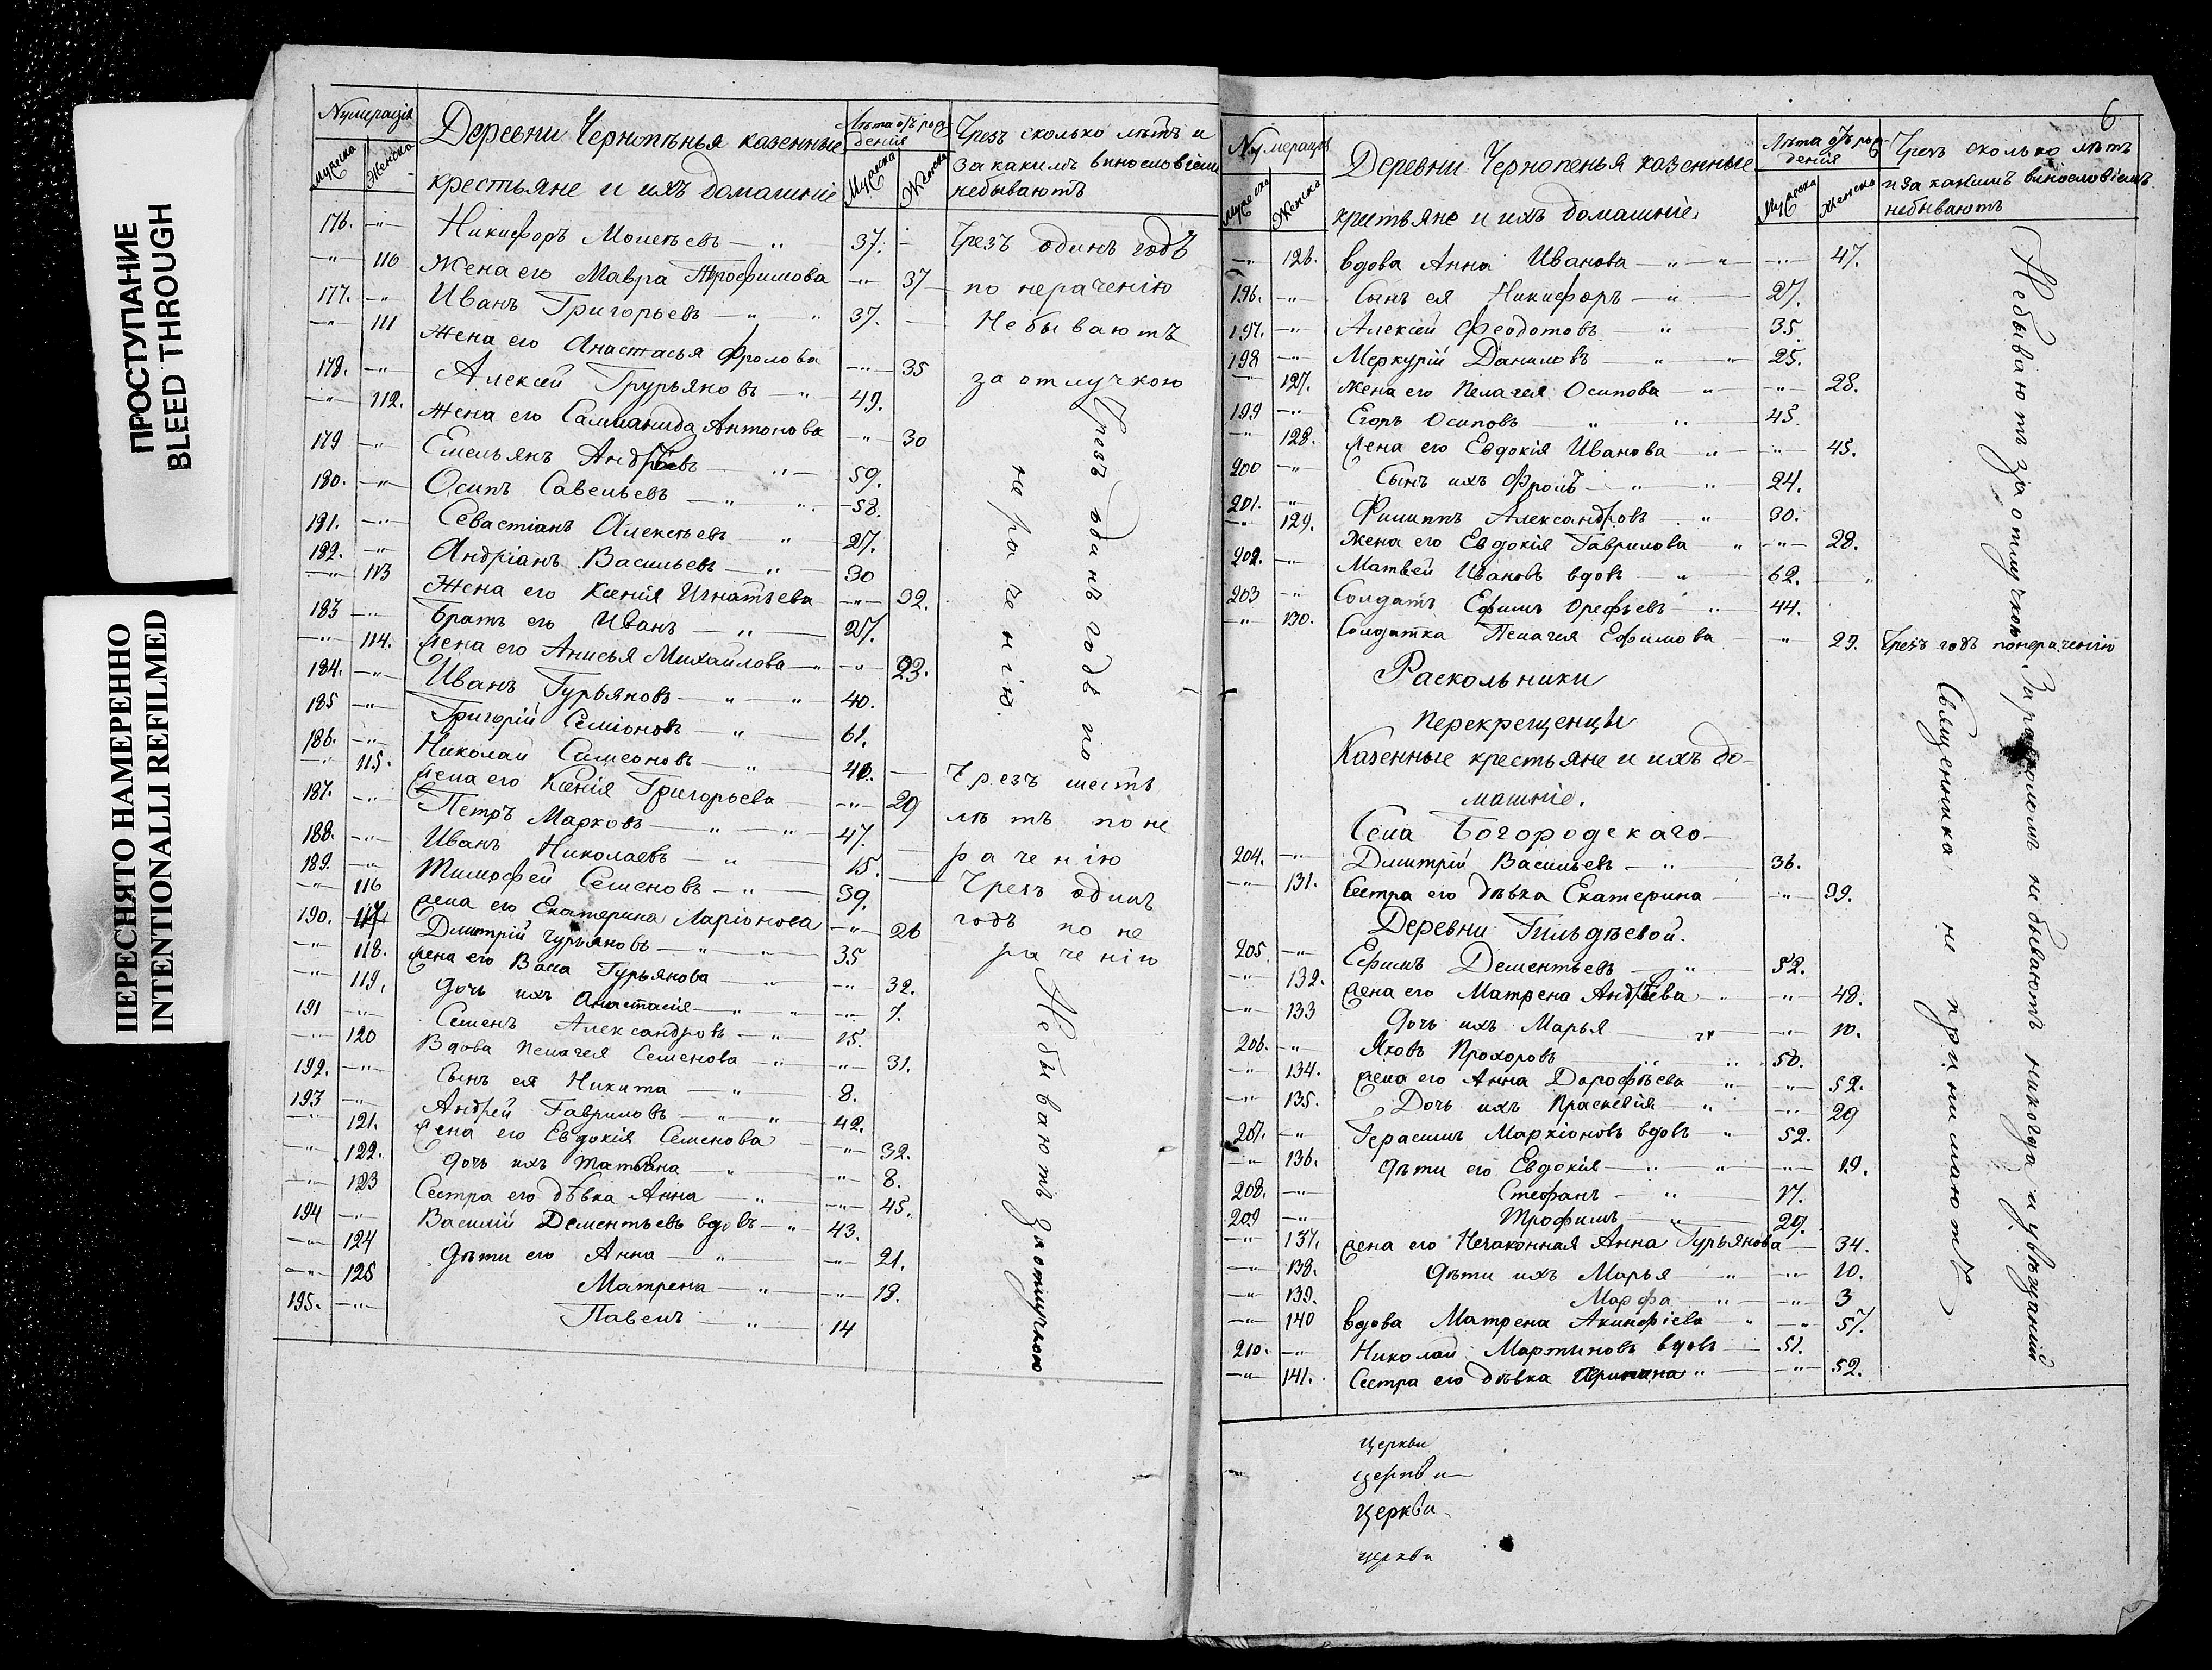 ПРОСТУПАНИЕ
BLEED THROUGH
ПЕРЕСНЯТО НАМЕРЕННО
INTENTIONALLI REFILMED
Нумерація Деревни Чернопѣнья казенные крестьяне и ихъ домашніе Лѣта отъ рожденія Чрезъ сколько лѣтъ и за какимъ винословіемъ небываютъ
Мужеска Женска Мужеска Женска
176. —"— Никифоръ Моисѣевъ — " 37. — Чрезъ одинъ годъ
—"— 110 Жена его Мавра Трофимова —"— 37 — по нераченію
177. —"— Иванъ Григорьевъ — " 37. — Небываютъ
—"— 111 Жена его Анастасья Фролова —"— 35 за отлучкою
178. —"— Алексѣй Гурьяновъ — " 49.
—"— 112. Жена его Антонова —"— 30
179 —"— Емельянъ Андрѣевъ — " — 59.
180. —"— Осипъ Савельевъ — " 58.
181. —"— Севастіанъ Алексѣевъ " 27.
182. —"— Андріанъ Васильевъ — " — 30
—"— 113 Жена его Ксенія Игнатьева —"— 32.
183 —"— Братъ его Иванъ — " — 27.
—"— 114. жена его Анисья Михайлова — " —"— 23.
184. —"— Иванъ Гурьяновъ — " — " 40.
185 —"— Григорій Семіоновъ — " 61.
186. —"— Николай Симеоновъ — " 40.
—"— 115. жена его Ксенія Григорьева —"— 29
187. —"— Петръ Марковъ — " — " 47.
188. —"— Иванъ Николаевъ — " 15.
189. —"— Тимофей Семеновъ — " 39.
—"— 116 жена его Екатерина Ларіонова —"— 26
190. 117. Дмитрій Гурьяновъ — " 35
—"— 118. жена его Васа Гурьянова " —"— 32.
—"— 119. дочь ихъ Анастасія — " —"— 7.
191 —"— Семенъ Александровъ — " 15.
—"— 120 Вдова Пелагея Семенова — " —"— 31.
192. —"— Сынъ ея Никита — " 8.
193 —"— Андрей Гавриловъ — " " 42.
—"— 121. жена его Евдокія Семенова —"— 32.
—"— 122. дочь ихъ Татьяна " —"— 8.
—"— 123 Сестра его дѣвка Анна — " —"— 45.
194 —"— Василій Дементьевъ вдовъ — " 43.
—"— 124 дѣти его Анна — " —"— 21.
—"— 125 Матрена — " —"— 18.
195. —"— Павелъ — " 14
Чрезъ одинъ годъ по
нераченію.
Чрезъ шесть
лѣтъ поне
раченію
Чрезъ одинъ
годъ по не
раченію
Небываютъ за отлучкою
6
Нумерація Деревни Чернопенья казенные крестьяне и ихъ домашніе Лѣта отъ рожденія Чрезъ сколько лѣтъ и за какимъ винословіемъ небываютъ
Мужеска Женска Мужеска Женска
—"— 126. вдова Анна Иванова — " — " —"— 47.
196. —"— Сынъ ея Никифоръ — " 27.
197. —"— Алексѣй Феодотовъ — " 35.
198 —"— Меркурій Даниловъ " " 25.
—"— 127. жена его Пелагея Осипова " —"— 28.
199 —"— Егоръ Осиповъ " " 45.
—"— 128. жена его Евдокія Иванова — " —"— 45.
200 —"— Сынъ ихъ Фролъ — " " 24.
201. —"— Филиппъ Александровъ " 30.
—"— 129. жена его Евдокія Гаврилова " —"— 28.
202. —"— Матвей Ивановъ вдовъ — " 62. — "
203 —"— Солдатъ Ефимъ Орефьевъ " 44.
—"— 130. Солдатка Пелагея Ефимова " 29. Чрезъ годъ понераченію
Раскольники
Перекрещенцы
Казенные крестьяне и ихъ до-
машніе.
Села Богородскаго —
204. —"— Дмитрій Васильевъ — " 36.
—"— 131. Сестра его дѣвка Екатерина —"— 39.
Деревни Гильдѣевой.
205. —"— Ефимъ Дементьевъ " 52.
—"— 132. жена его Матрена Андрѣева " —"— 48.
—"— 133 дочь ихъ Марья " —"— 10.
206. —"— Яковъ Прохоровъ " 50.
—"— 134. жена его Анна Дорофѣева " —"— 52.
—"— 135. Дочь ихъ Праскевія " —"— 29
207. —"— Герасимъ Мархіоновъ вдовъ " 52.
—"— 136. дѣти его Евдокія — " " —"— 19.
208. —"— Стефанъ — " 17.
209 —"— Трофимъ — " 29.
—"— 137. жена его Незаконная Анна Гурьянова — 34.
—"— 138. дѣти ихъ Марья — " —"— 10.
—"— 139. Марфа — " —"— 3
—"— 140 вдова Матрена Акинфіева " —"— 57.
210. —"— Николай Мартиновъ вдовъ 51.
—"— 141. Сестра его дѣвка " —"— 52.
Небываютъ за отлучкою
За расколомъ не бываютъ никогда и увѣщаній
Священника не принимаютъ
церкви
церкви —
Церкви
церкви